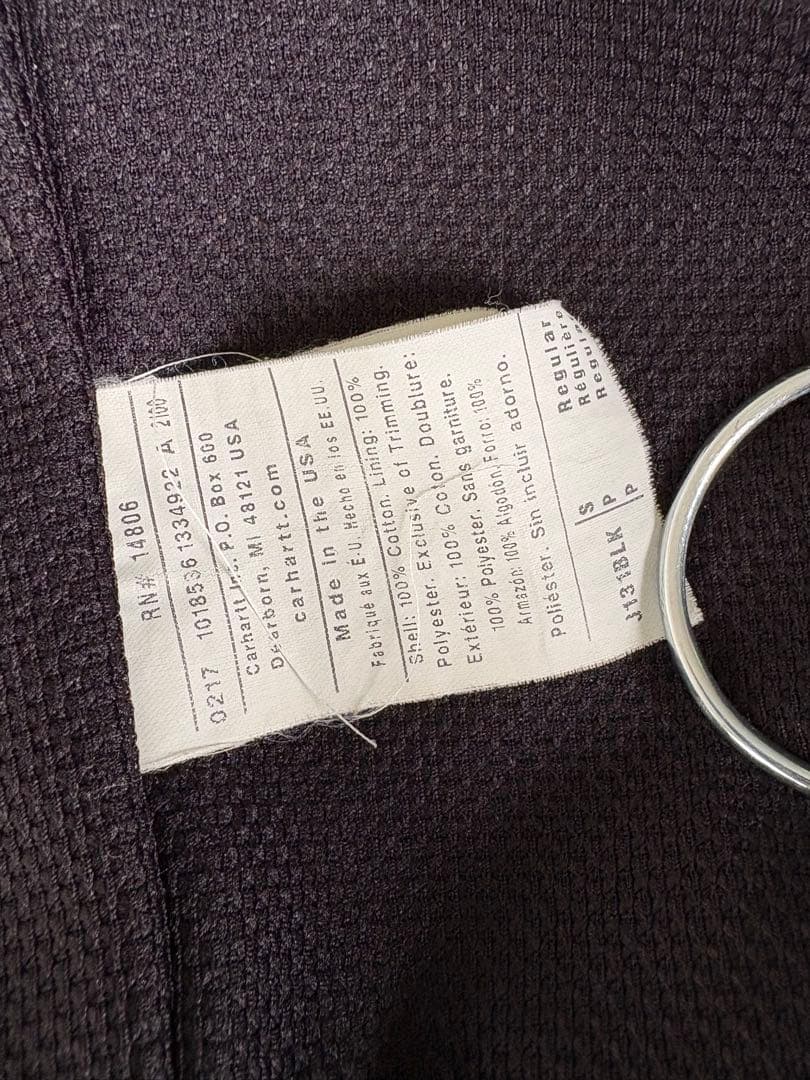 RN# 14806
0217 1018536 1334922 A 2100
Carhartt Inc. P.O. Box 600
Dearborn, MI 48121 USA
carhartt.com
Made in the USA
Fabriqué aux É.U. Hecho en los EE.UU.
Shell: 100% Cotton. Lining: 100%
Polyester. Exclusive of Trimming.
Extérieur: 100% Coton. Doublure:
100% Polyester. Sans garniture.
Armazón: 100% Algodón. Forro: 100%
Poliéster. Sin incluir adorno.
J131BLK S Regular
P Régulière
P Regula